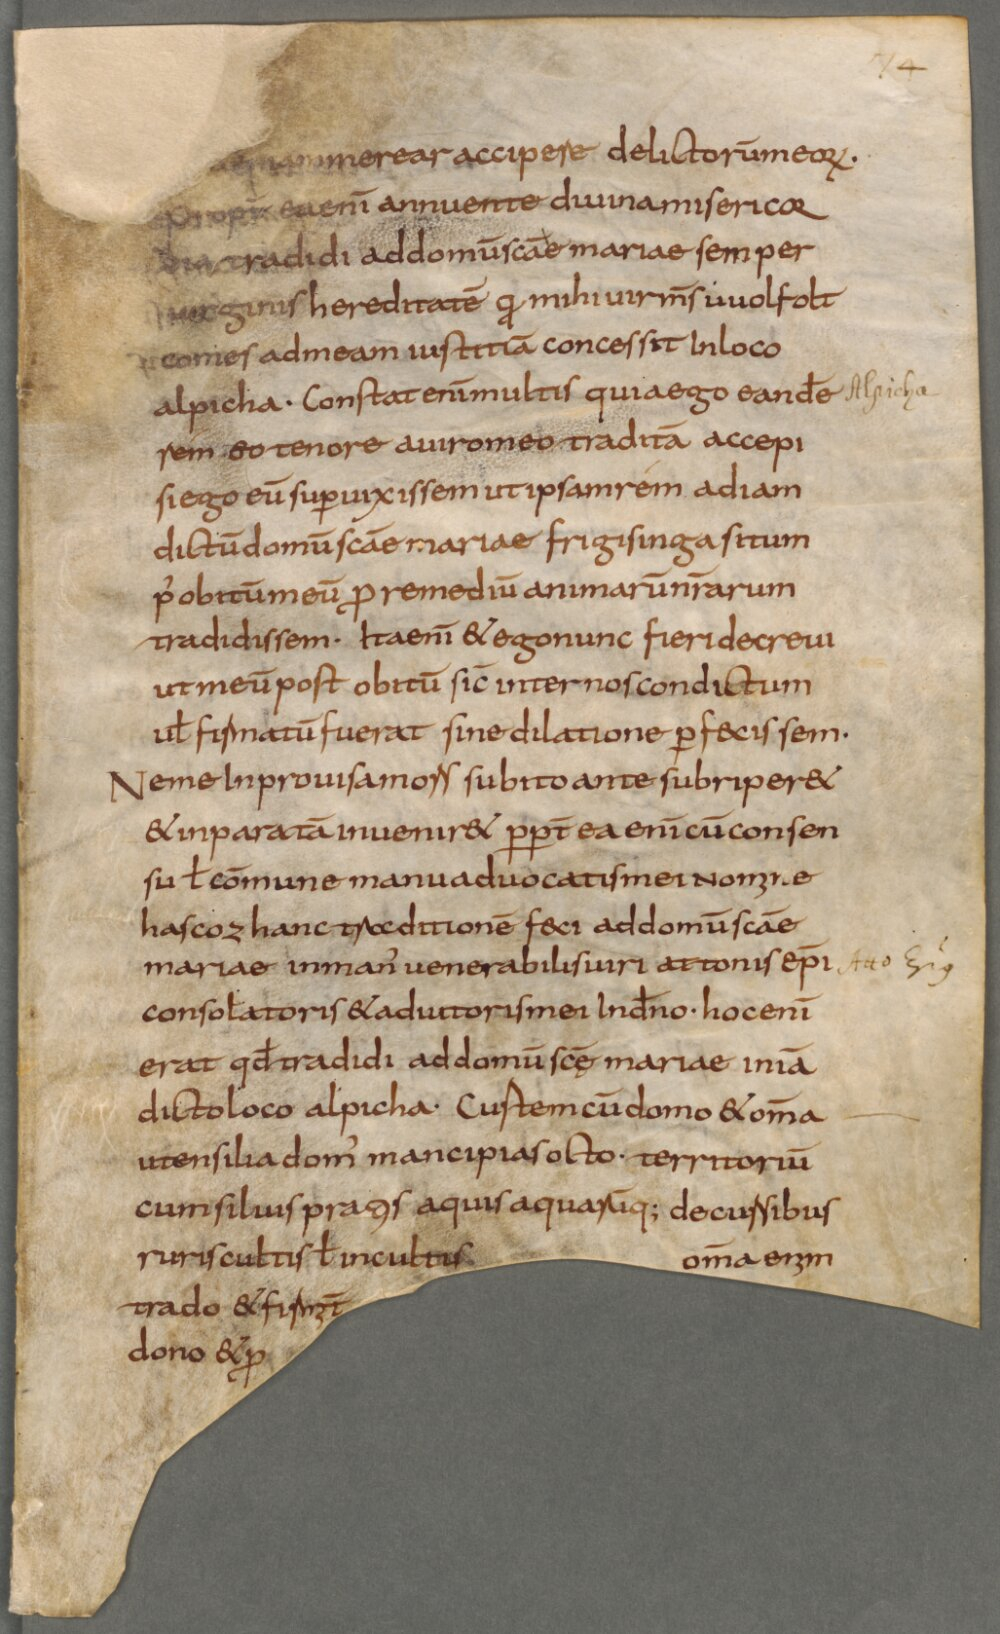 74
merear accipere delictorūmeoꝝ.
Propt̄ eaenī annuente diuinamisericor
dia tradidi addomūsc̄ae mariae semper
uirginis hereditatē q̄ mihiuirm̄s uuolfolt
comes admeam iustitiā concessit Inloco
alpicha. Constatenīmultis quiaego eandē Alpicha
rem eo tenore auiromeo traditā accepi
siego eūsupuixissem utipsamrem adiam
dictūdomūsc̄ae mariae frigisinga situm
p᾽obitūmeū ꝓremediūanimarūnr̄arum
tradidissem. Itaenī &egonunc fieridecreui
utmeūpost obitū sic̄ internoscondictum
ul̄ firmatūfuerat sinedilatione ꝑf&cissem.
Neme Inprouisamors subitoante subriper&
&inparatā inuenir& ꝓpt̄ ea enīcūconsen
su ł cōmune manuaduocatismei nomine
hascoz hanc traditionē feci addomūsc̄ae
mariae inman᾽ uenerabilisuiri attonis ep̄i Atto
consolatoris &adiutorismei Ind̄no. hocenī
erat qd̄tradidi addomūsc̄ę mariae iniā
dictoloco alpicha. Custemcūdomo &om̄a
utensiliadom᾽ mancipiasocto. territoriū
cumsiluispratis aquisaquarūq; decursibus
ruriscultisł incultis om̄a enim
trado &firmit̄
dono &ꝑ